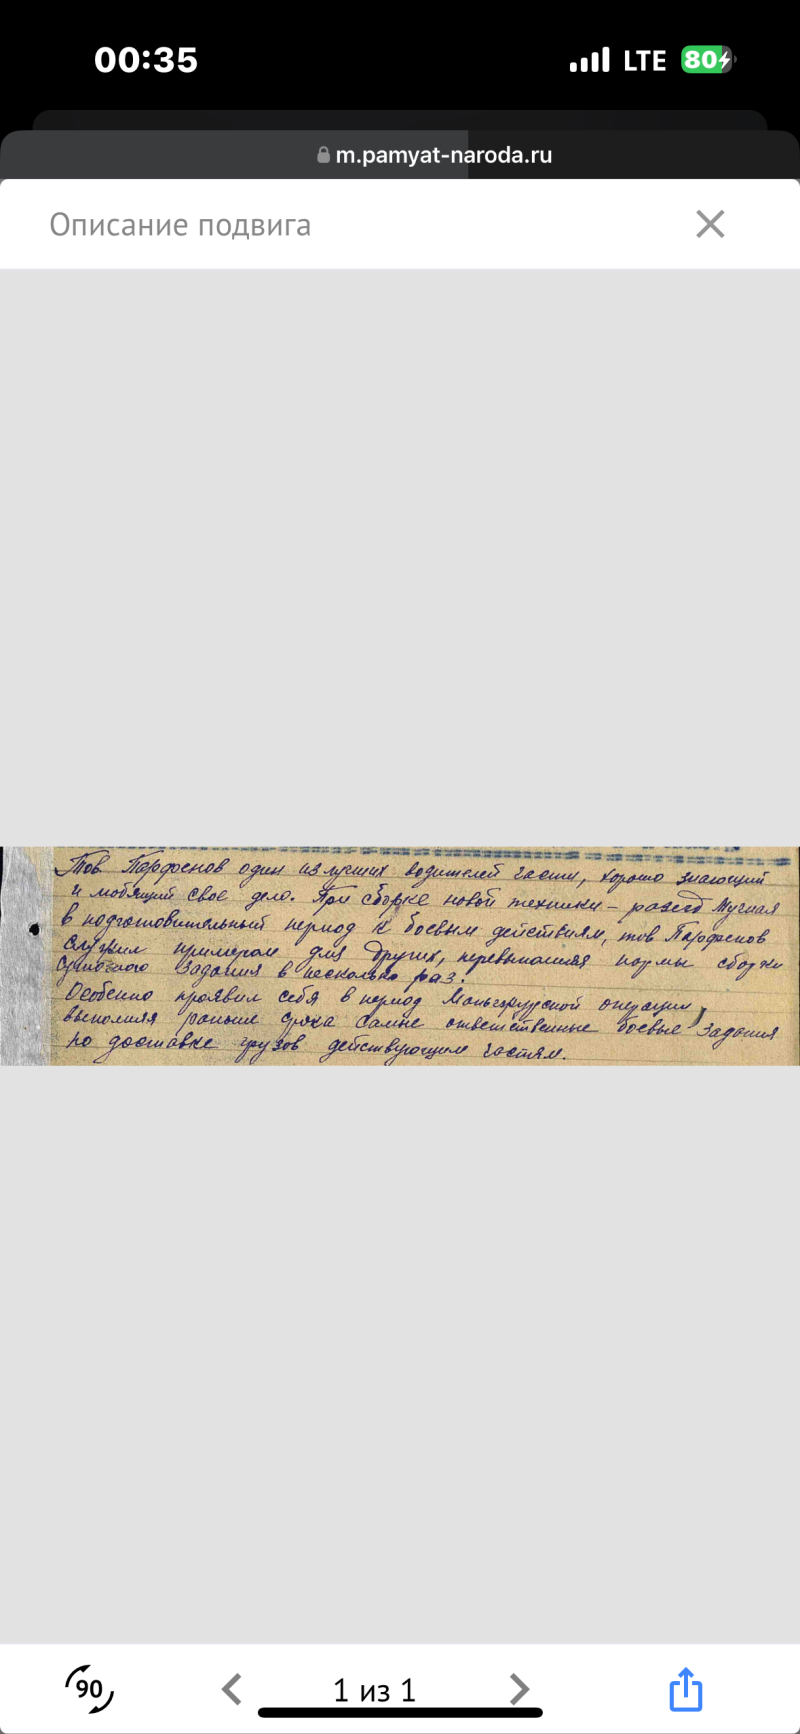 00:35
LTE 80
m.pamyat-naroda.ru
Описание подвига
Тов. Парфенов один из лучших водителей части, хорошо знающий
и любящий свое дело. При сборке новой техники – разезд Мучная
в подготовительный период к боевым действиям, тов Парфенов
служил примером для других, перевыполняя нормы сборки
суточного задания в несколько раз.
Особенно проявил себя в период Маньчжурской операции,
выполняя раньше срока самые ответственные боевые задания
по доставке грузов действующим частям.
90
1 из 1